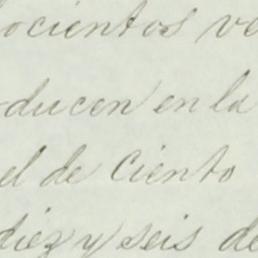 ocientos ve
ducen en la
el de Ciento
diez y seis de